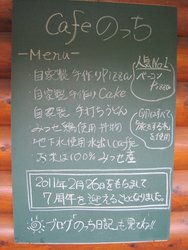 Cafe のっち
-Menu-
・自家製 手作りPizza
・自家製 手作りCake
・自家製 手打ちうどん
みつせ鶏使用 丼物
地下水使用 水出しcaffe
お米は100% みつせ産
人気No.1
ベーコン
Pizza
2011年2月26日をもちまして
7周年を迎えることとなりました。
ブログ「のっち日記」も見てネ!!